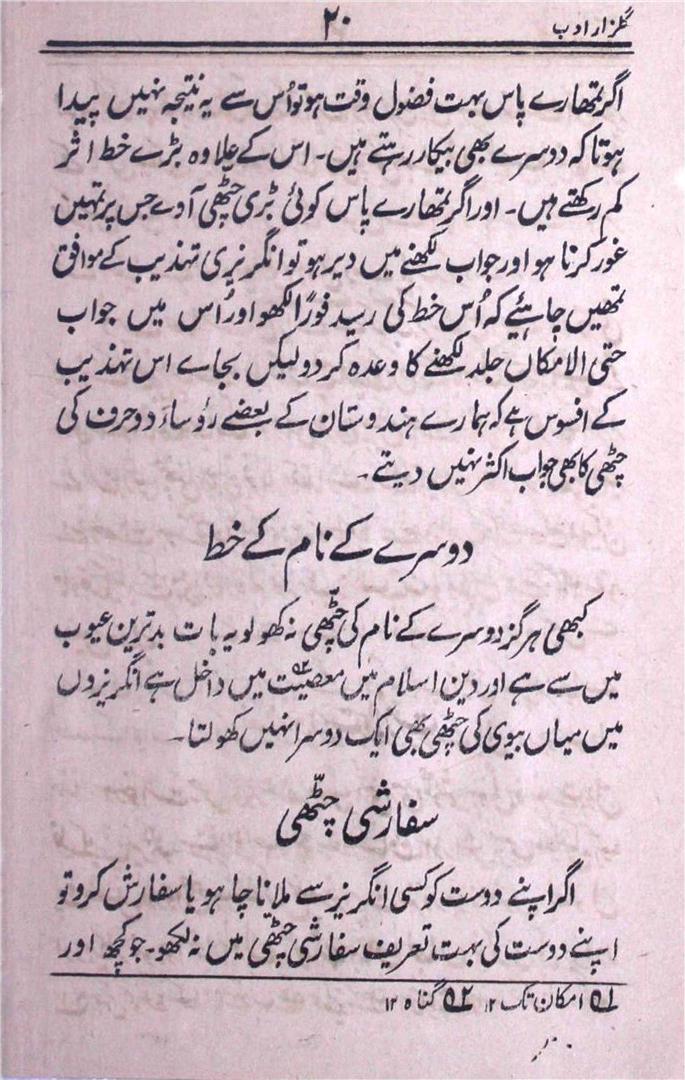 گلزار ادب
۲۰
اگر تمھارے پاس بہت فضول وقت ہو تو اُس سے یہ نتیجہ نہیں پیدا
ہوتا کہ دوسرے بھی بیکار رہتے ہیں۔ اس کے علاوہ بڑے خط اثر
کم رکھتے ہیں۔ اور اگر تمھارے پاس کوئی بڑی چٹھی آوے جس پر تمہیں
غور کرنا ہو اور جواب لکھنے میں دیر ہو تو انگریزی تہذیب کے موافق
تمھیں چاہئیے کہ اُس خط کی رسید فورًا لکھو اور اُس میں جواب
حتی الامکاں جلد لکھنے کا وعدہ کر دو لیکن بجاے اس تہذیب
کے افسوس ہے کہ ہمارے ہندوستان کے بعضے رؤساء دو حرف کی
چٹھی کا بھی جواب اکثر نہیں دیتے۔
دوسرے کے نام کے خط
کبھی ہرگز دوسرے کے نام کی چٹّھی نہ کھولو یہ بات بدترین عیوب
میں سے ہے اور دین اسلام میں معصیت۵۲ میں داخل ہے انگریزوں
میں میاں بیوی کی چٹھی بھی ایک دوسرا نہیں کھولتا۔
سفارشی چٹّھی
اگر اپنے دوست کو کسی انگریز سے ملانا چاہو یا سفارش کرو تو
اپنے دوست کی بہت تعریف سفارشی چٹّھی میں نہ لکھو۔ جو کچھ اور
۵۱ امکان تک ۱۲ ۵۲ گناہ ۱۲